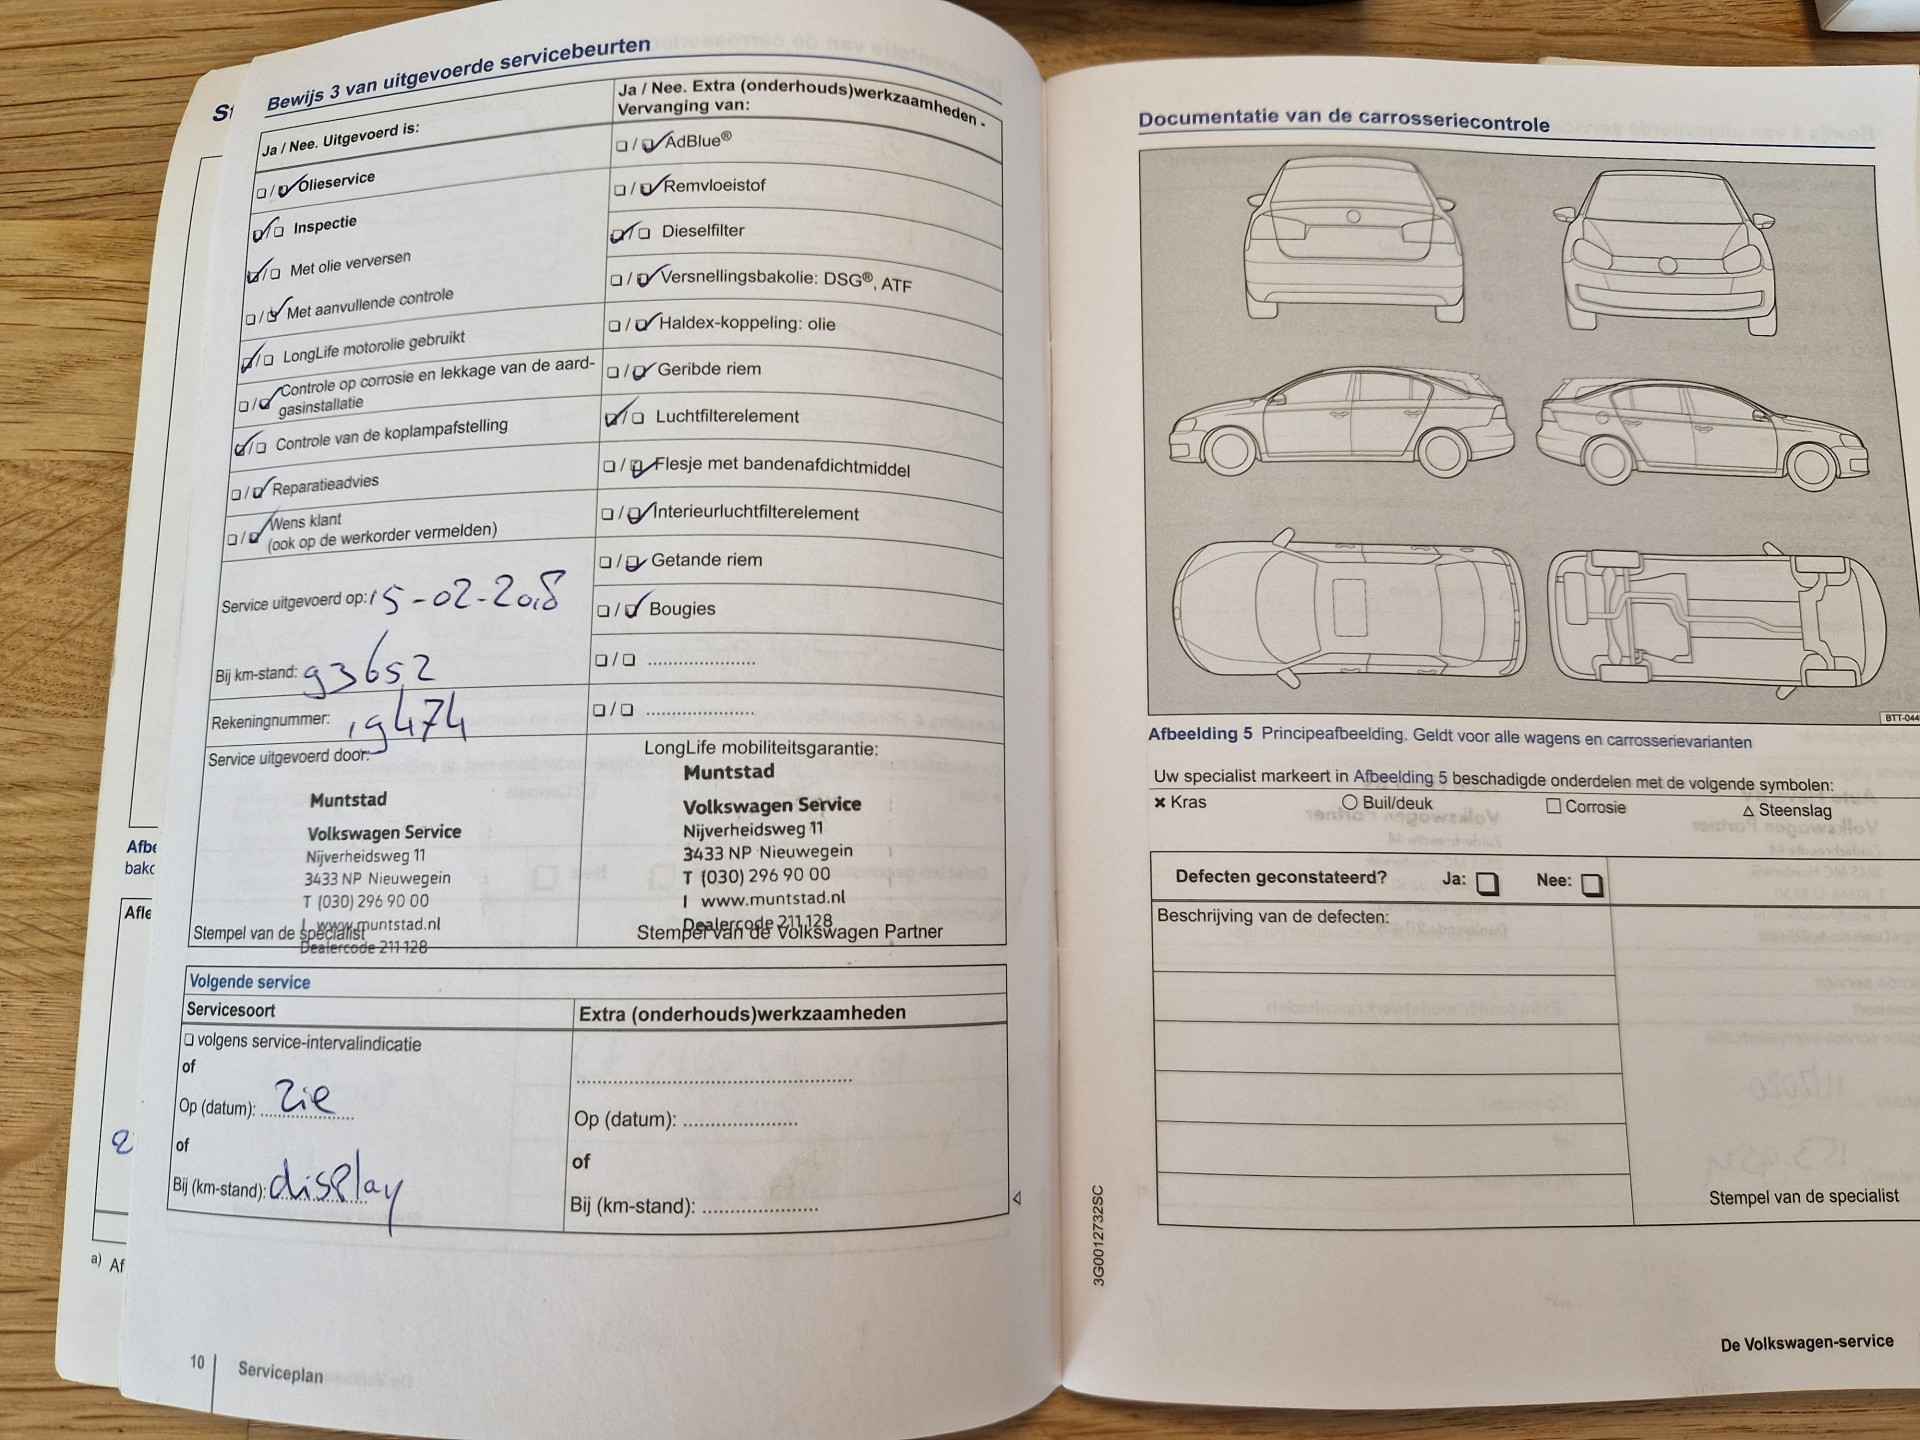 St
Bewijs 3 van uitgevoerde servicebeurten
Ja / Nee. Uitgevoerd is:
Olieservice
Inspectie
Met olie verversen
Met aanvullende controle
LongLife motorolie gebruikt
Controle op corrosie en lekkage van de aard-
gasinstallatie
Controle van de koplampafstelling
Reparatieadvies
Wens klant
(ook op de werkorder vermelden)
Service uitgevoerd op: 15-02-2018
Bij km-stand: 93652
Rekeningnummer: 19474
Service uitgevoerd door:
Muntstad
Volkswagen Service
Nijverheidsweg 11
3433 NP Nieuwegein
T (030) 296 90 00
I www.muntstad.nl
Stempel van de specialist
Dealercode 211 128
Ja / Nee. Extra (onderhouds)werkzaamheden -
Vervanging van:
AdBlue®
Remvloeistof
Dieselfilter
Versnellingsbakolie: DSG®, ATF
Haldex-koppeling: olie
Geribde riem
Luchtfilterelement
Flesje met bandenafdichtmiddel
Interieurluchtfilterelement
Getande riem
Bougies
LongLife mobiliteitsgarantie:
Muntstad
Volkswagen Service
Nijverheidsweg 11
3433 NP Nieuwegein
T (030) 296 90 00
I www.muntstad.nl
Dealercode 211 128
Stempel van de Volkswagen Partner
Volgende service
Servicesoort
volgens service-intervalindicatie
of
Op (datum): zie
of
Bij (km-stand): display
Extra (onderhouds)werkzaamheden
Op (datum):
of
Bij (km-stand):
10
Serviceplan
Afbe
bakc
Afle
a) Af
Documentatie van de carrosseriecontrole
BTT-044
Afbeelding 5 Principeafbeelding. Geldt voor alle wagens en carrosserievarianten
Uw specialist markeert in Afbeelding 5 beschadigde onderdelen met de volgende symbolen:
Kras
Buil/deuk
Corrosie
Steenslag
Defecten geconstateerd? Ja: Nee:
Beschrijving van de defecten:
Stempel van de specialist
3G0012732SC
De Volkswagen-service